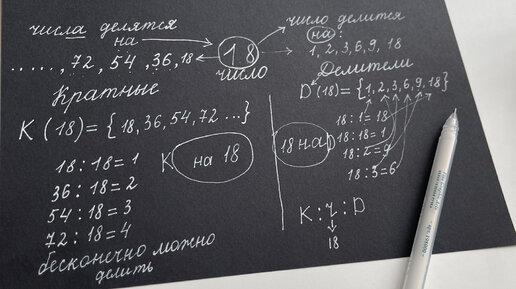 числа делятся
на
....., 72, 54, 36, 18
18
число
число делится
на:
1, 2, 3, 6, 9, 18
Кратные
K (18) = { 18, 36, 54, 72 ...}
18 : 18 = 1
36 : 18 = 2
54 : 18 = 3
72 : 18 = 4
бесконечно можно
делить
K на 18
Делители
D (18) = {1, 2, 3, 6, 9, 18}
18 на
18 : 1 = 18
18 : 18 = 1
18 : 2 = 9
18 : 3 = 6
K : Ч : D
18